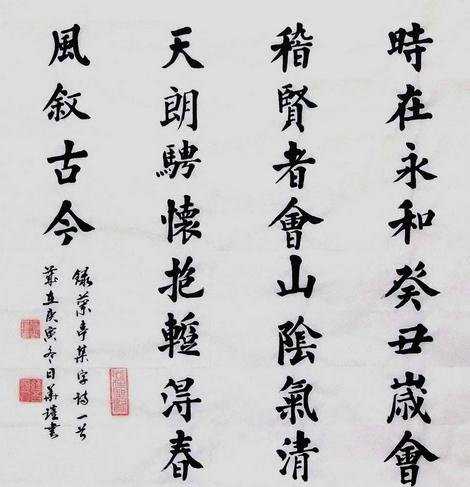 時在永和癸丑歲會
稽賢者會山陰氣清
天朗騁懷抱蹔得春
風叙古今
錄蘭亭集字詩一首
歲在庚寅冬日書